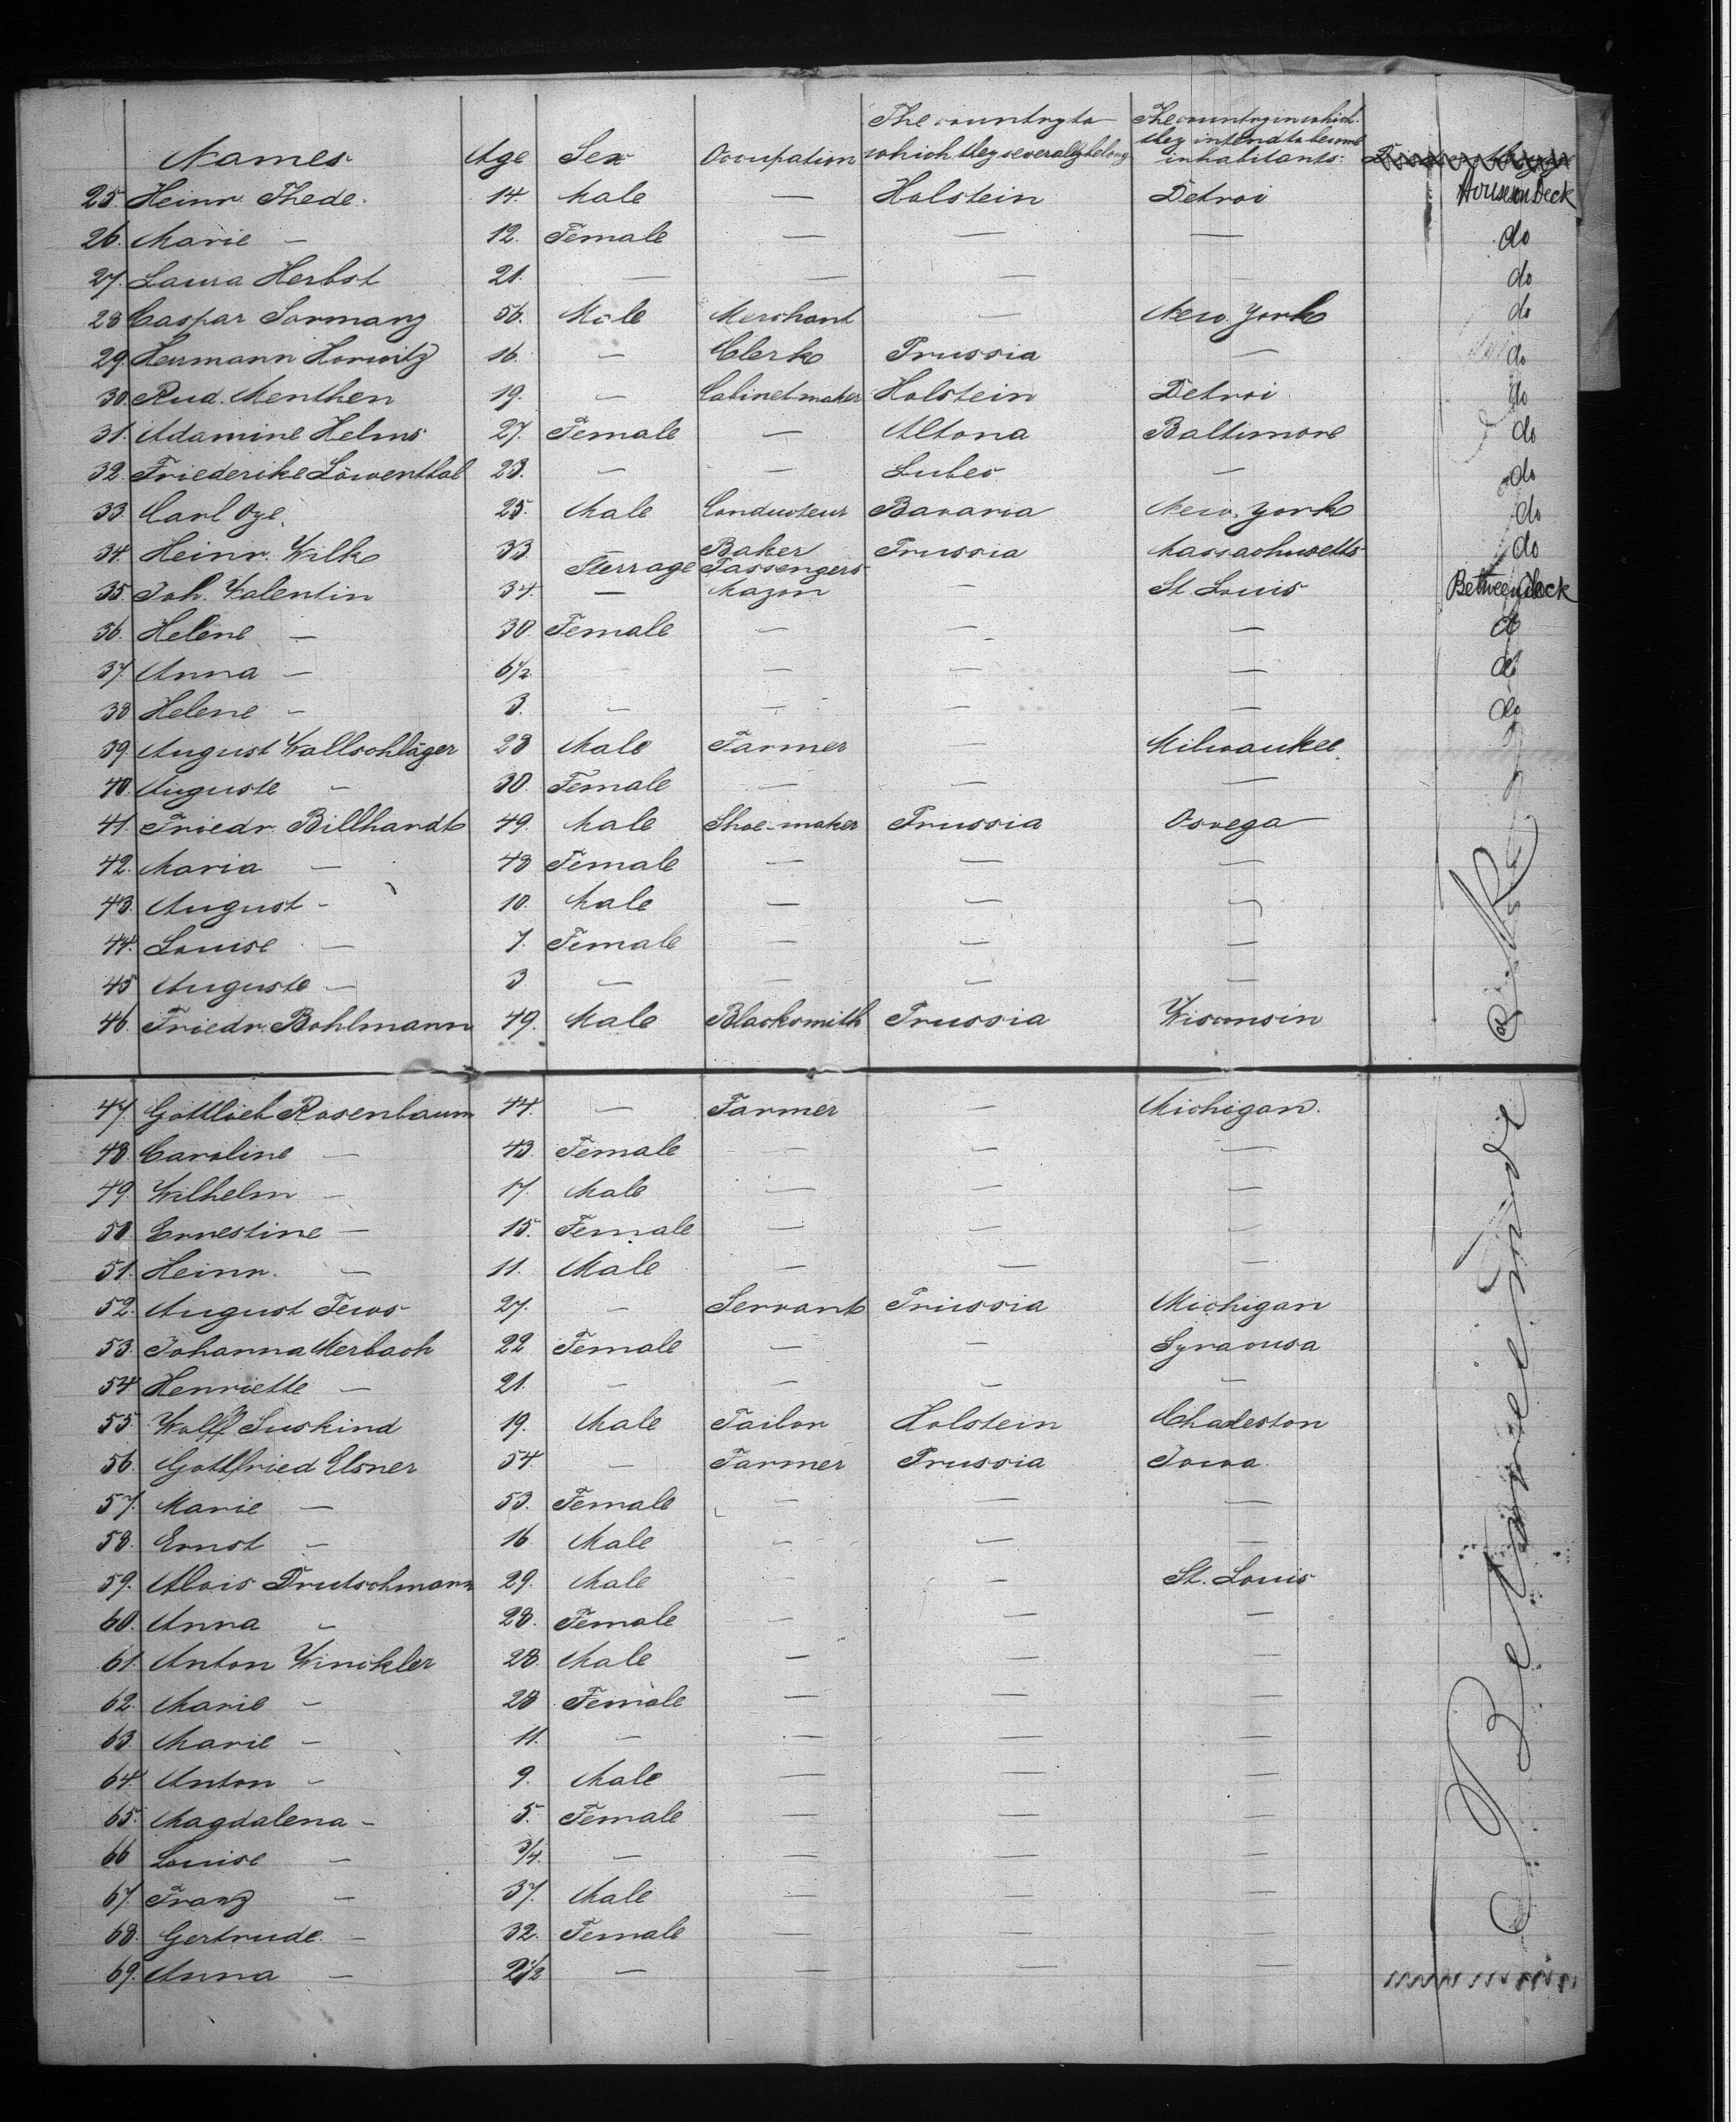 Names Age Sex Occupation The country to which they severally belong The country in which they intend to become inhabitants:
25. Heinr. Thede. 14. Male — Holstein Detroi House on Deck
26. Marie — 12. Female — — — do
27. Laura Herbst 21. — — — — do
28 Caspar Sormany 56. Male Merchant — New. York do
29. Hermann Horwitz 16. — Clerk Prussia — do
30. Rud. Menthen 19. — Cabinetmaker Holstein Detroi do
31. Adamine Helms 27. Female — Altona Baltimore do
32. Friederike Löwenthal 23. — — Lubec — do
33. Carl Oze. 25. Male Conducteur Bavaria New. York do
34. Heinr. Wilk 33. Baker Prussia Massachusetts do
Sterrage Passengers
35. Joh. Valentin 34. — Mazon — St. Louis Between deck
36. Helene — 30. Female — — — do
37. Anna — 6 1/2 — — — — do
38 Helene — 3. — — — — do
39. August Wallschläger 28 Male Farmer — Milwaukee
40. Auguste — 30. Female — — —
41. Friedr. Billhardt 49. Male Shoe-maker Prussia Osvega
42. Maria — 48 Female — — —
43. August — 10. Male — — —
44. Louise — 7. Female — — —
45 Auguste — 3 — — — —
46. Friedr. Bohlmann 49. Male Blacksmith Prussia Wisconsin
47. Gottlieb Rosenbaum 44. — Farmer — Michigan.
48. Caroline — 43. Female — — —
49. Wilhelm — 17. Male — — —
50. Ernestine — 15. Female — — —
51. Heinr. — 11. Male — — —
52. August Tews 27. — Servant Prussia Michigan
53. Johanna Merbach 22 Female — — Syracusa
54 Henriette — 21. — — — —
55. Wolff Suskind 19. Male Tailor Holstein Chadeston
56. Gottfried Elsner 54. — Farmer Prussia Iowa.
57. Marie — 53. Female — — —
58. Ernst — 16 Male — — —
59. Alois Trutschmann 29. Male — — St. Louis
60. Anna — 28. Female — — —
61. Anton Winckler 28. Male — — —
62. Marie — 28 Female — — —
63. Marie — 11. — — — —
64. Anton — 9. Male — — —
65. Magdalena — 5. Female — — —
66 Louise — 3/4. — — — —
67. Franz — 37. Male — — —
68. Gertrude. — 32. Female — — —
69. Anna — 2 1/2 — — — —